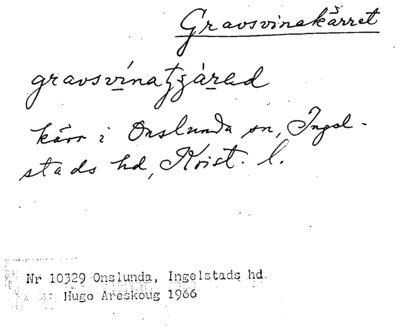 Gravsvinakärret
gravsvínatʒàrəd
kärr i Onslunda sn, Ingel-
stads hd, Krist. l.
Nr 10329 Onslunda, Ingelstads hd
Hugo Areskoug 1966